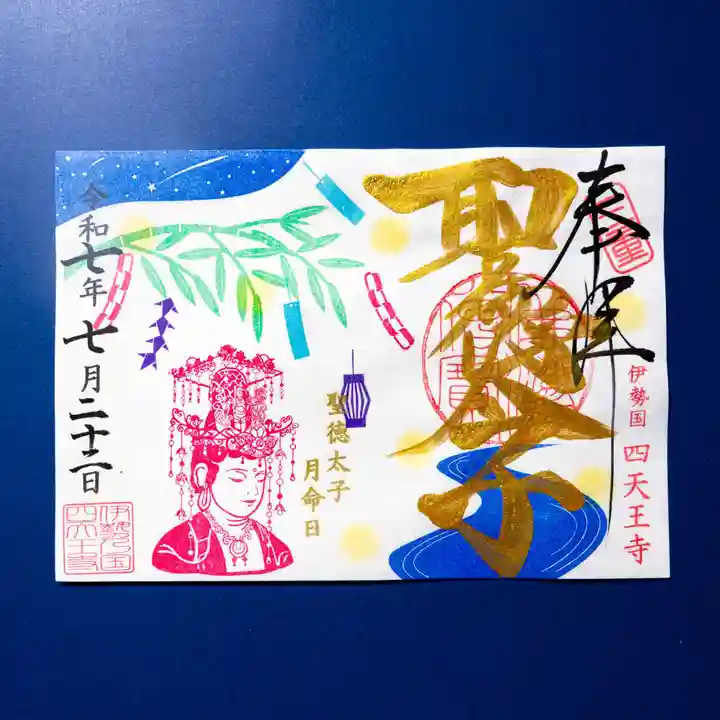 奉拝
三重
伊勢国 四天王寺
聖徳太子
聖徳太子
月命日
令和七年七月二十二日
伊勢国
四天王寺